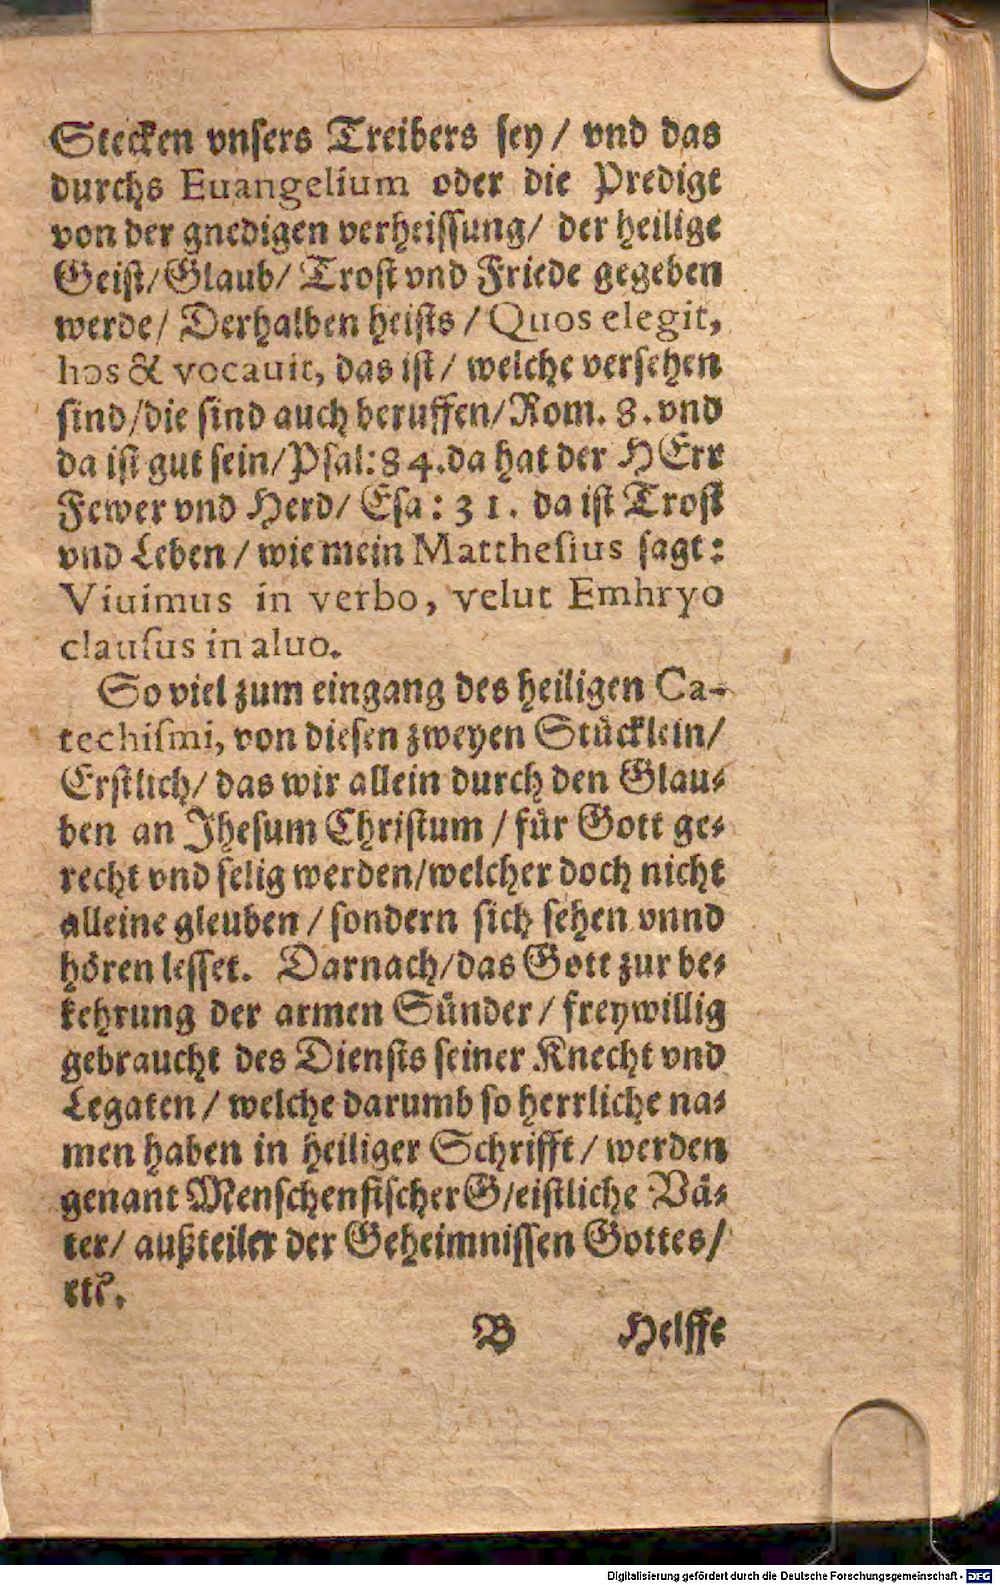 Stecken vnsers Treibers sey / vnd das
durchs Euangelium oder die Predigt
von der gnedigen verheissung/ der heilige
Geist/Glaub/ Trost vnd Friede gegeben
werde/ Derhalben heists / Quos elegit,
hos & vocauit, das ist / welche versehen
sind/die sind auch beruffen/Rom. 8. vnd
da ist gut sein/Psal: 84. da hat der HErr
Fewer vnd Herd/ Esa: 31. da ist Trost
vnd Leben / wie mein Matthesius sagt:
Viuimus in verbo, velut Emhryo
clausus in aluo.
So viel zum eingang des heiligen Ca-
techismi, von diesen zweyen Stücklein/
Erstlich/ das wir allein durch den Glau-
ben an Jhesum Christum / für Gott ge-
recht vnd selig werden/welcher doch nicht
alleine gleuben / sondern sich sehen vnnd
hören lesset. Darnach/das Gott zur be-
kehrung der armen Sünder / freywillig
gebraucht des Diensts seiner Knecht vnd
Legaten / welche darumb so herrliche na-
men haben in heiliger Schrifft / werden
genant Menschenfischer G/eistliche Vä-
ter/ außteiler der Geheimnissen Gottes/
etc.
B Helffe
Digitalisierung gefördert durch die Deutsche Forschungsgemeinschaft - DFG